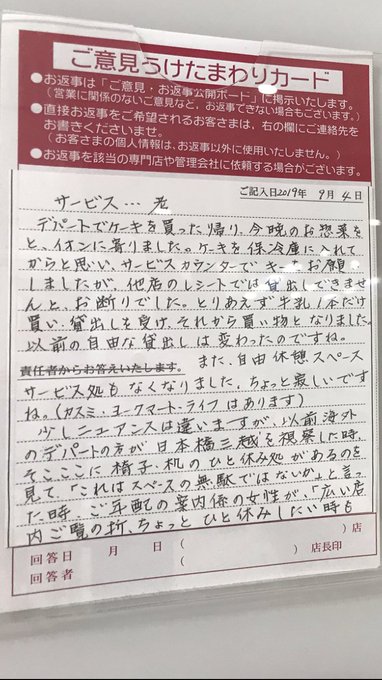 ご意見うけたまわりカード
●お返事は「ご意見・お返事公開ボード」に掲示いたします。
（営業に関係のないご意見など、お返事できない場合もございます。）
●直接お返事をご希望されるお客さまは、右の欄にご連絡先を
お書きくださいませ。
（お客さまの個人情報は、お返事以外に使用いたしません。）
●お返事を該当の専門店や管理会社に依頼する場合がございます。
ご記入日2019年 9月 4日
サービス…考
デパートでケーキを買った帰り、今晩のお惣菜を
と、イオンに寄りました。ケーキを保冷庫に入れて
からと思い、サービスカウンターでキーをお願い
しましたが、他店のレシートでは貸出しできませ
んと、お断りでした。とりあえず牛乳1本だけ
買い、貸出しを受け、それから買い物となりました。
以前の自由な貸出しは変わったのですね。
責任者からお答えいたします。 また、自由休憩スペース
サービス処もなくなりました、ちょっと寂しいです
ね。(カスミ・ヨークマート・ライフはあります)
少しニュアンスは違いますが、以前海外
のデパートの方が日本橋三越を視察した時、
そこここに椅子・机のひと休み処があるのを
見て、「これはスペースの無駄ではないか」と言っ
た時、ご年配の案内係の女性が、「広い店
内ご覧の折、ちょっとひと休みしたい時も
(　　　　　)店
回答日　月　日 (　　　　　)店長印
回答者 (